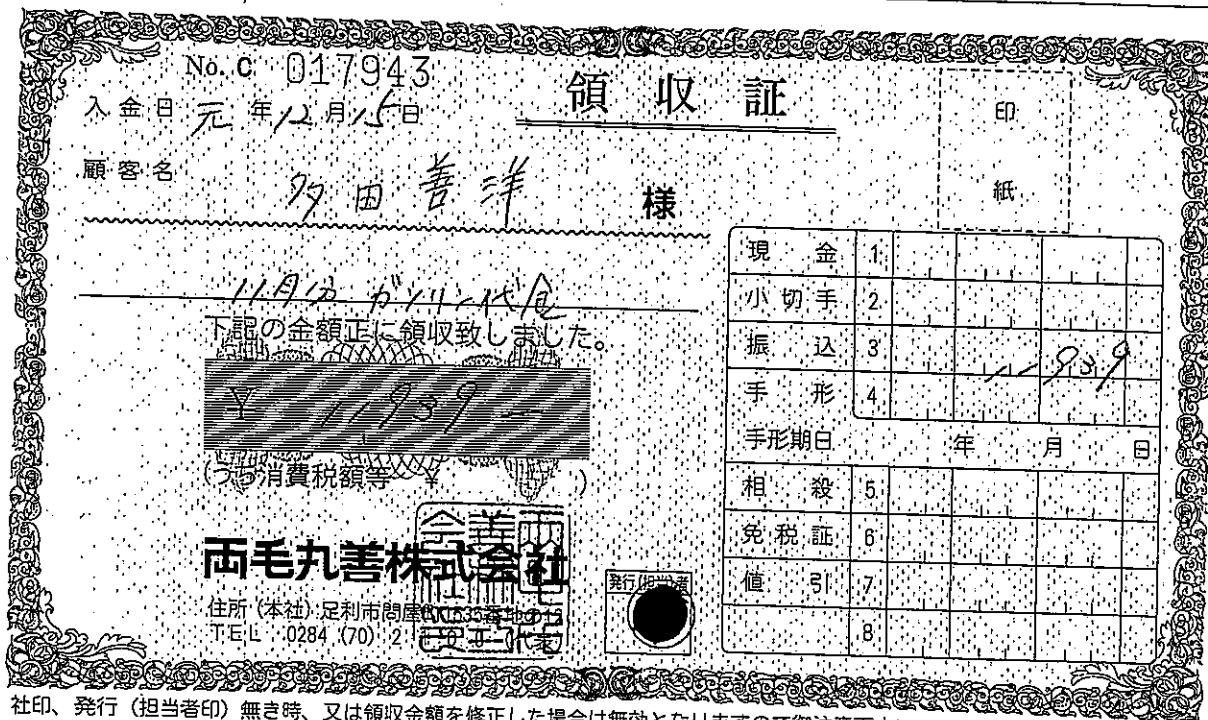 No. C 017943
領収証
印紙
入金日 元年12月15日
顧客名 多田善洋 様
11月分 ガソリン代金
下記の金額正に領収致しました。
¥ 11939 ―
(うち消費税額等 ¥ )
両毛丸善株式会社
住所(本社)足利市問屋
TEL 0284 (70) 2
発行(担当)者
現金 1
小切手 2
振込 3 11939
手形 4
手形期日 年 月 日
相殺 5
免税証 6
値引 7
8
社印、発行(担当者印)無き時、又は領収金額を修正した場合は無効となりますので御注意下さい